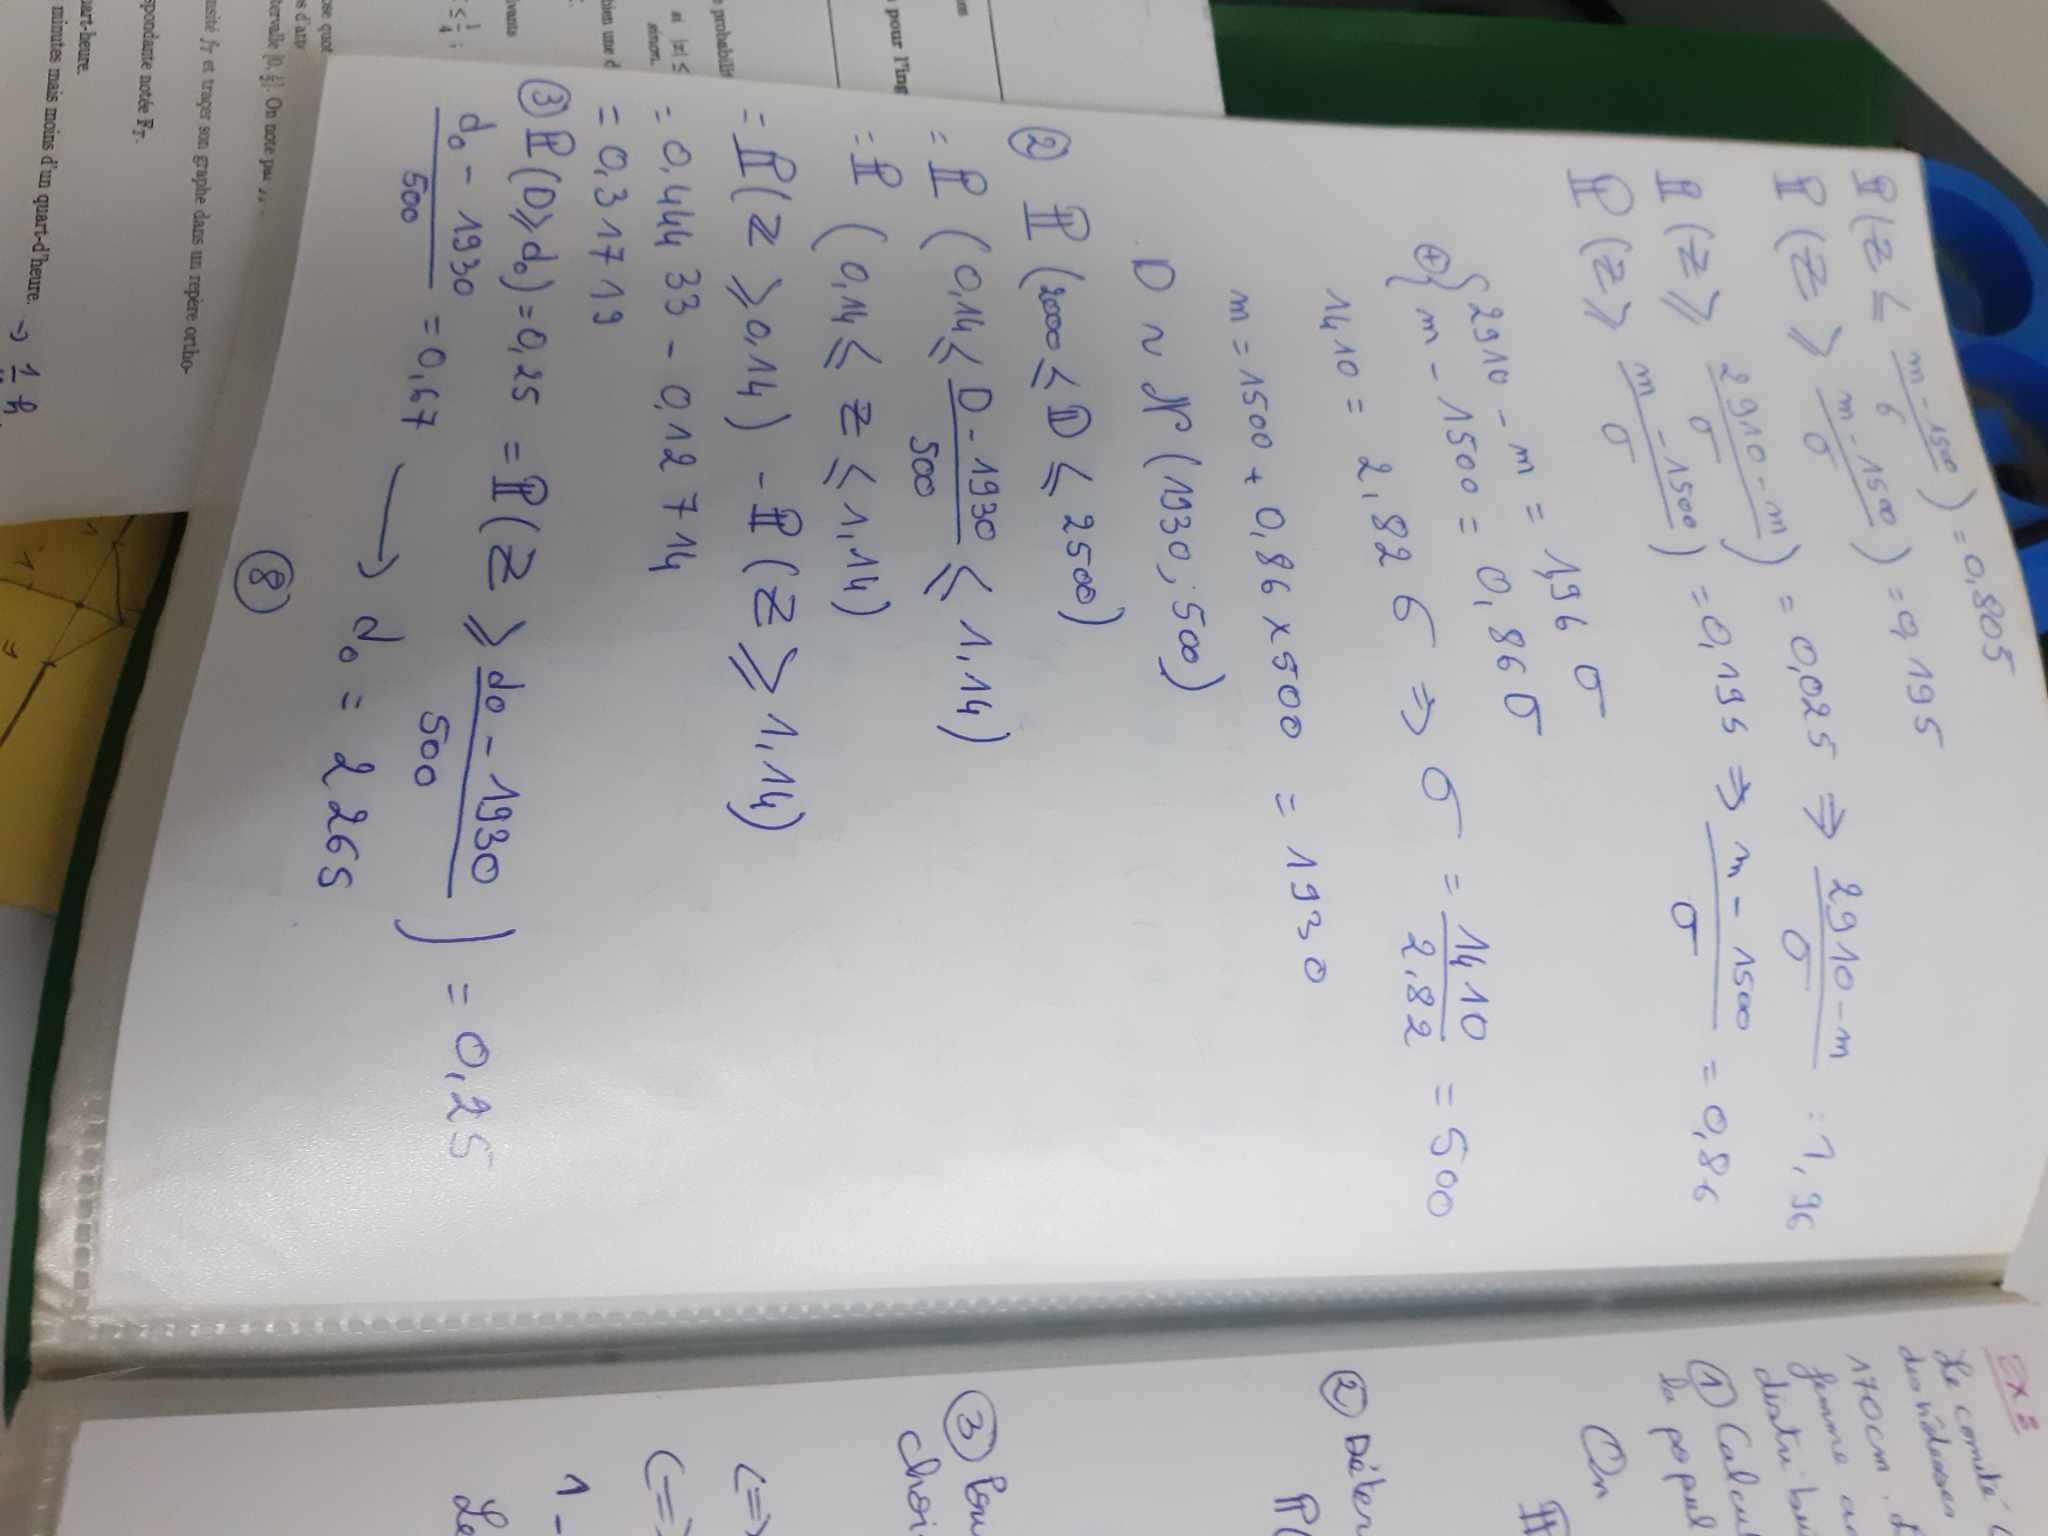 ℙ(Z ≤ (m - 1500)/σ) = 0,805
ℙ(Z ≥ (m - 1500)/σ) = 0,195
ℙ(Z ≥ (2910 - m)/σ) = 0,025 ⇒ (2910 - m)/σ = 1,96
ℙ(Z ≥ (m - 1500)/σ) = 0,195 ⇒ (m - 1500)/σ = 0,86
⊕ { 2910 - m = 1,96 σ
m - 1500 = 0,86 σ
1410 = 2,82 σ ⇒ σ = 1410/2.82 = 500
m = 1500 + 0,86 × 500 = 1930
D ~ N(1930; 500)
② ℙ(2000 ≤ D ≤ 2500)
= ℙ(0,14 ≤ (D - 1930)/500 ≤ 1,14)
= ℙ(0,14 ≤ Z ≤ 1,14)
= ℙ(Z ≥ 0,14) - ℙ(Z ≥ 1,14)
= 0,44433 - 0,12714
= 0,31719
③ ℙ(D ≥ d₀) = 0,25 = ℙ(Z ≥ (d₀ - 1930)/500) = 0,25
(d₀ - 1930)/500 = 0,67 → d₀ = 2265
⑧
EX 3
Le comité
170 cm.
femme
① Calcul
la popul
On
② Déter
ℙ(
③ Pour
choi
⇔
⇔
1 -
Le
pour l'ing
probabilit
si |x| ≤
sinon.
bien une d
ivants
≤ 1/4 ;
ose quot
s d'atte
tervalle [0, 1/2]. On note par
nsité f_T et traçer son graphe dans un repère ortho-
spondante notée F_T.
uart-heure.
minutes mais moins d'un quart-d'heure. →